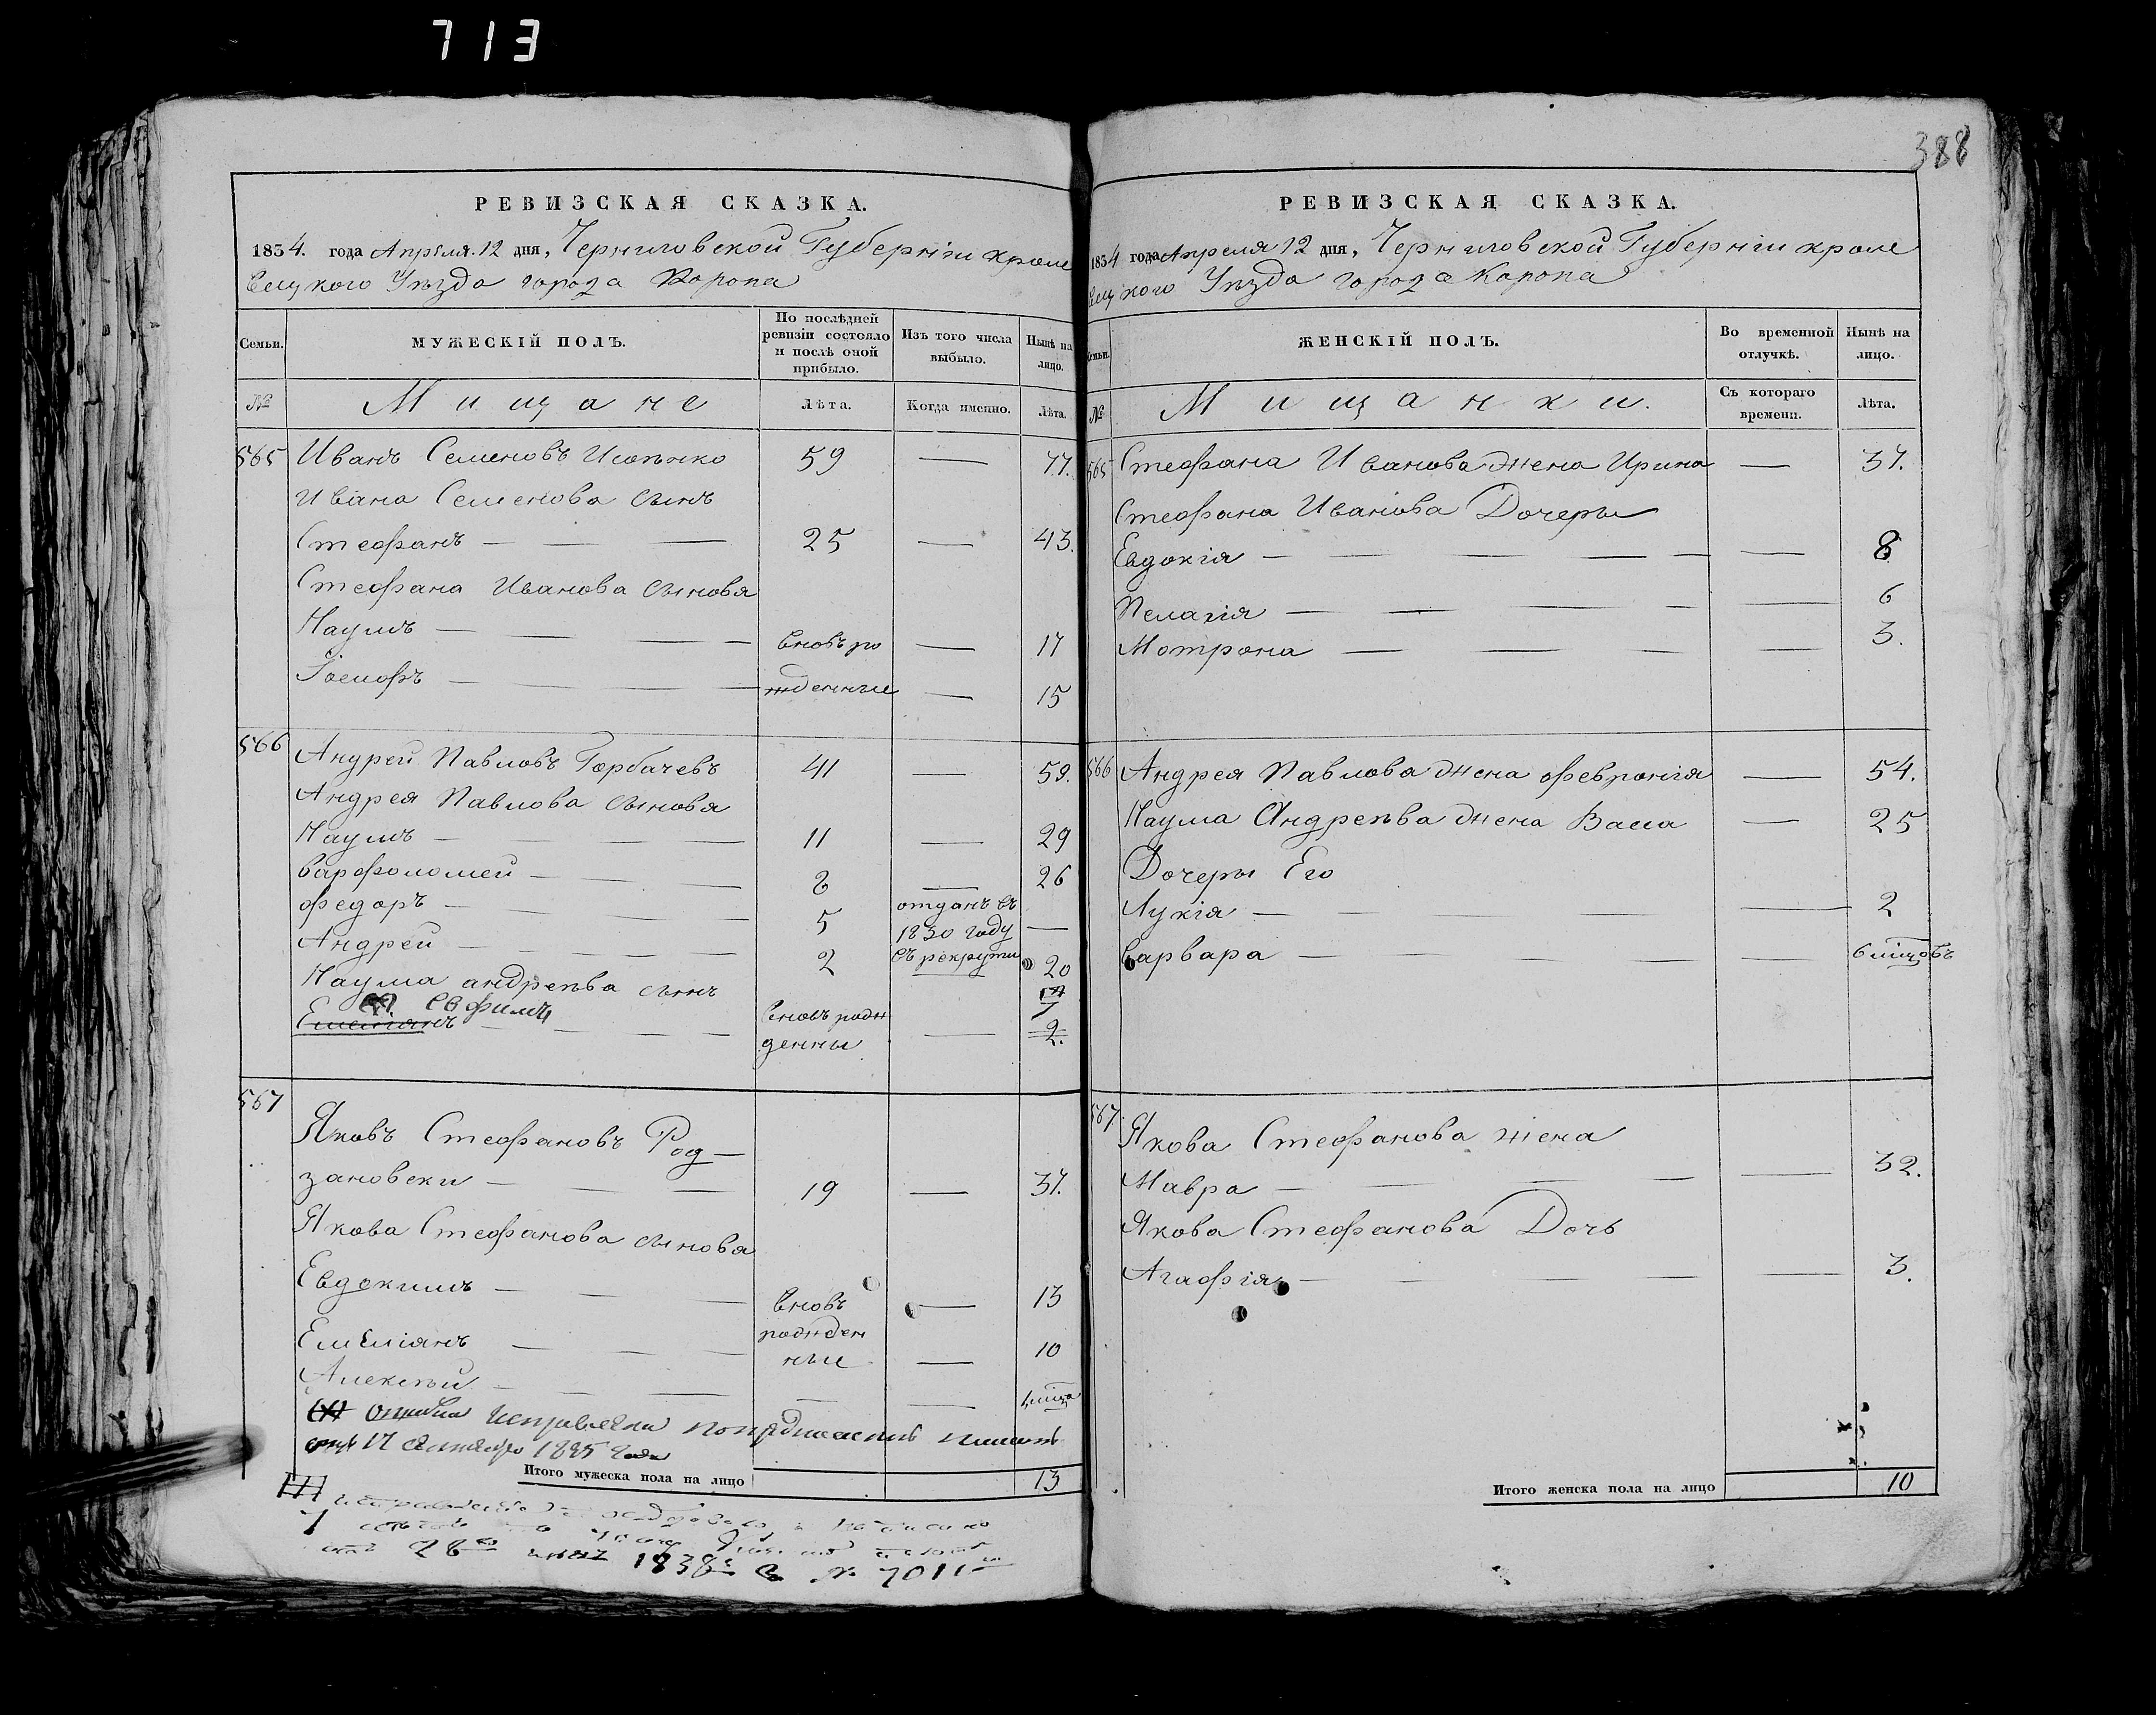 713
388
РЕВИЗСКАЯ СКАЗКА.
1834. года Апрѣля. 12 дня, Черниговской Губерніи кроле
вецкого Уѣзда города Коропа
Семьи. МУЖЕСКІЙ ПОЛЪ. По послѣдней ревизіи состояло и послѣ оной прибыло. Изъ того числа выбыло. Нынѣ на лицо.
№ Мищане Лѣта. Когда именно. Лѣта.
565 Иванъ Семеновъ 59 — 77.
Ивана Семенова сынъ
Стефанъ — — — 25 — 43.
Стефана Иванова сыновя
Наумъ — — — вновъ ро — 17
Іосифъ — — — жденные — 15
566 Андрей Павловъ Горбачевъ 41 — 59.
Андрея Павлова сыновя
Наумъ — — — 11 — 29
Варфоломей — — — 8 — 26
Федоръ — — — 5 отданъ въ 1830 году въ рекруты —
Андрей — — — 2 20
Наума андреева сынъ
Евфимъ
Емеліянъ — — — вновъ рож денны — 2.
567 Яковъ Стефановъ Род—
зановски — — — 19 — 37.
Якова Стефанова сыновя
Евдокимъ — — — вновъ — 13
Емеліянъ — — — рожден ные — 10
Алексѣй — — — — —
Ошибка исправлена
17 1835 года
Итого мужеска пола на лицо 13
28 1838 № 7011
РЕВИЗСКАЯ СКАЗКА.
1834 года Апреля 12 дня, Черниговской Губерніи кроле
вецкого Уѣзда города Коропа
Семьи. ЖЕНСКІЙ ПОЛЪ. Во временной отлучкѣ. Нынѣ на лицо.
№ Мищанки. Съ котораго времени. Лѣта.
565 Стефана Иванова жена Ирина — 37.
Стефана Иванова Дочеры
Евдокія — — — — — 8
Пелагія — — — — — 6
Мотрона — — — — 3.
566 Андрея Павлова жена Февронія — 54.
Наума Андреева жена Васса — 25
Дочеры Его
Лукія — — — — — 2
Варвара — — — — —
567 Якова Стефанова жена
Мавра — — — — — 32.
Якова Стефанова Дочь
Агафія — — — — — 3.
Итого женска пола на лицо 10